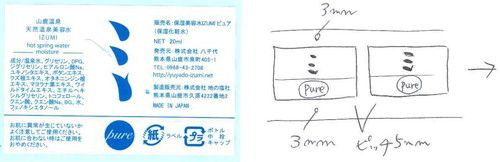 山鹿温泉
天然温泉美容水
IZUMI
hot spring water
moisture
成分/温泉水、グリセリン、DPG、
ジグリセリン、ヒアルロン酸Na、
ユキノシタエキス、ボタンエキス、
クズ根エキス、オタネニンジン根
エキス、マヨラナ葉エキス、ワイ
ルドタイムエキス、エチルヘキ
シルグリセリン、トコフェロール、
クエン酸、クエン酸Na、BG、水、
フェノキシエタノール
お肌に異常が生じていないか
よく注意してご使用ください。
お肌に合わない時はご使用を
おやめください。
販売名:保湿美容水IZUMI ピュア
(保湿化粧水)
NET 20ml
発売元:株式会社 八千代
熊本県山鹿市鹿校通1-1
TEL 0968-43-2708
http://yuyado-izumi.net
製造販売元:株式会社 地の塩社
熊本県山鹿市久原4222番地2
MADE IN JAPAN
pure
紙
ラベル
プラ
ボトル
中栓
キャップ
3mm
Pure
Pure
3mm
ピッチ45mm